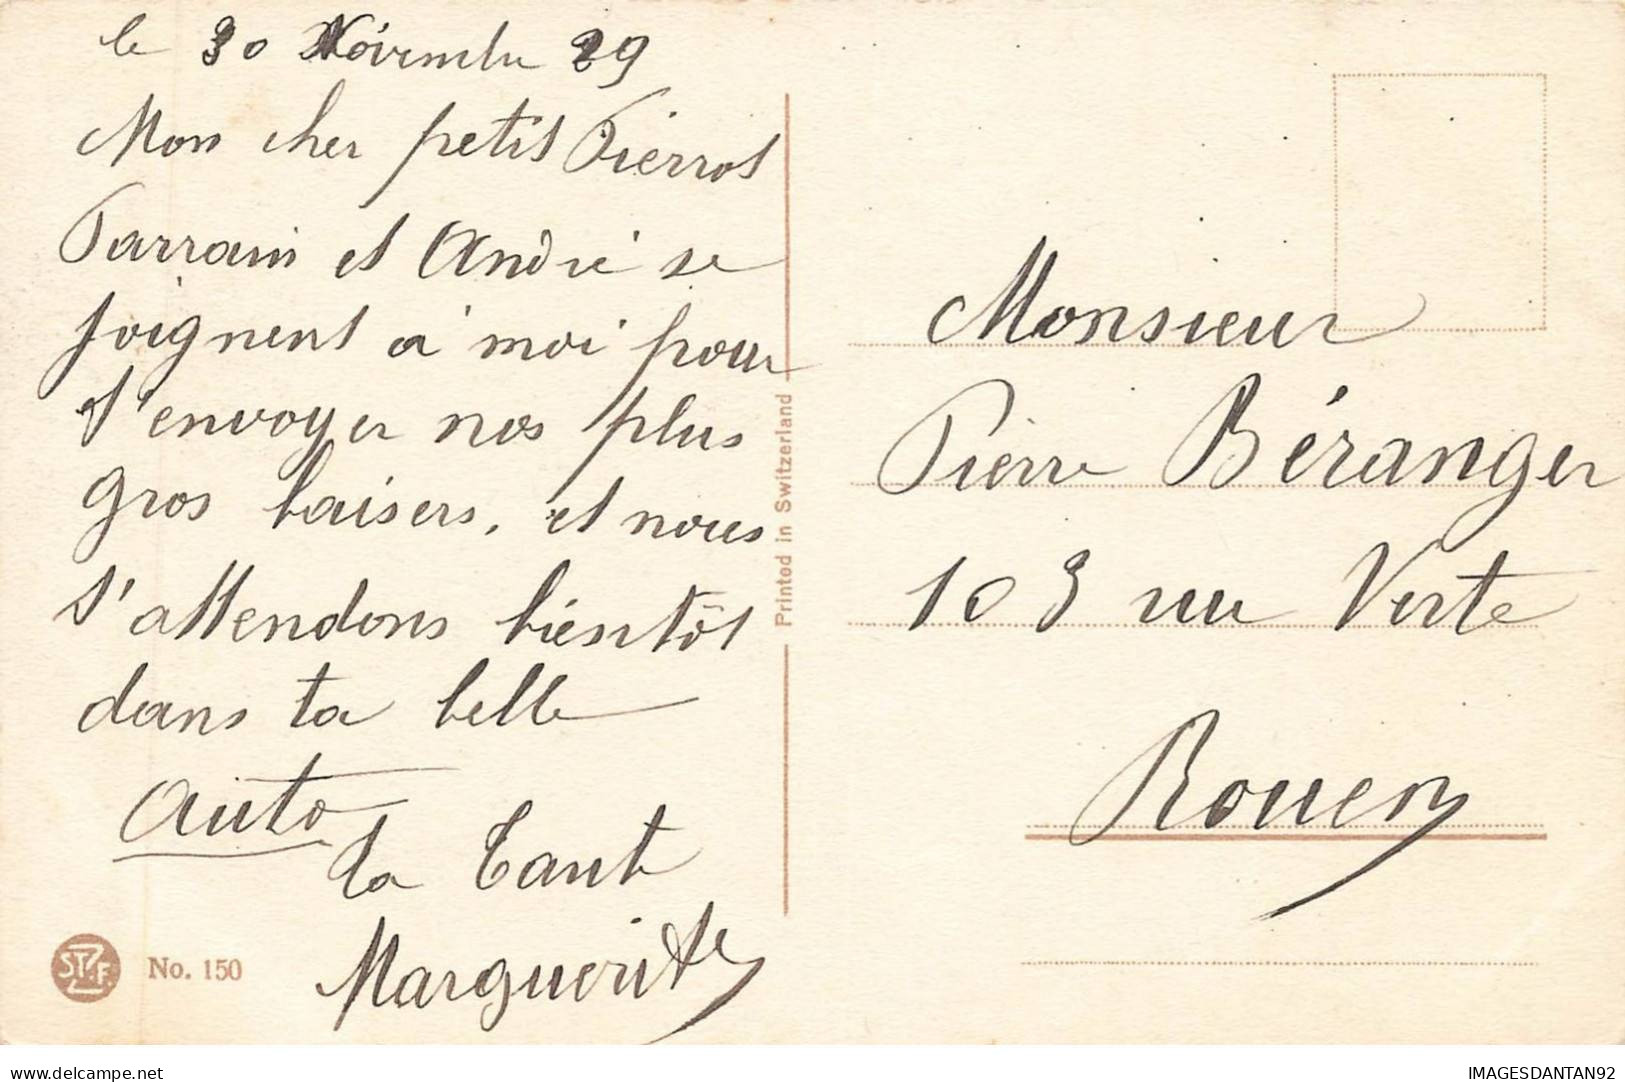 le 30 Novembre 29
Mon cher petit Pierrot
Parrain et André se
joignent à moi pour
t'envoyer nos plus
gros baisers, et nous
t'attendons bientôt
dans ta belle
auto
Ta Tante
Marguerite
Printed in Switzerland
Monsieur
Pierre Béranger
103 rue Verte
Rouen
STZF.
No. 150
delcampe.net
IMAGESDANTAN92